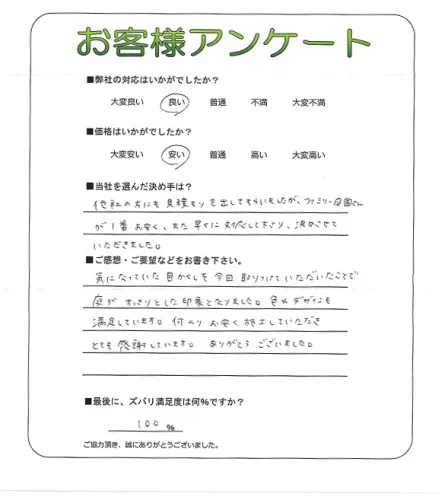 お客様アンケート
■弊社の対応はいかがでしたか？
大変良い 良い 普通 不満 大変不満
■価格はいかがでしたか？
大変安い 安い 普通 高い 大変高い
■当社を選んだ決め手は？
他社の方にも見積もりを出してもらいましたが、ファミリー庭園さん
が1番お安く、また早々に対応して下さり、決めさせて
いただきました。
■ご感想・ご要望などをお書き下さい。
気になっていた目かくしも今回取りつけていただいたことで
庭がすっきりとした印象となりました。色やデザインも
満足しています。何よりお安く施工していただき
とても感謝しています。ありがとうございました。
■最後に、ズバリ満足度は何％ですか？
100 ％
ご協力頂き、誠にありがとうございました。